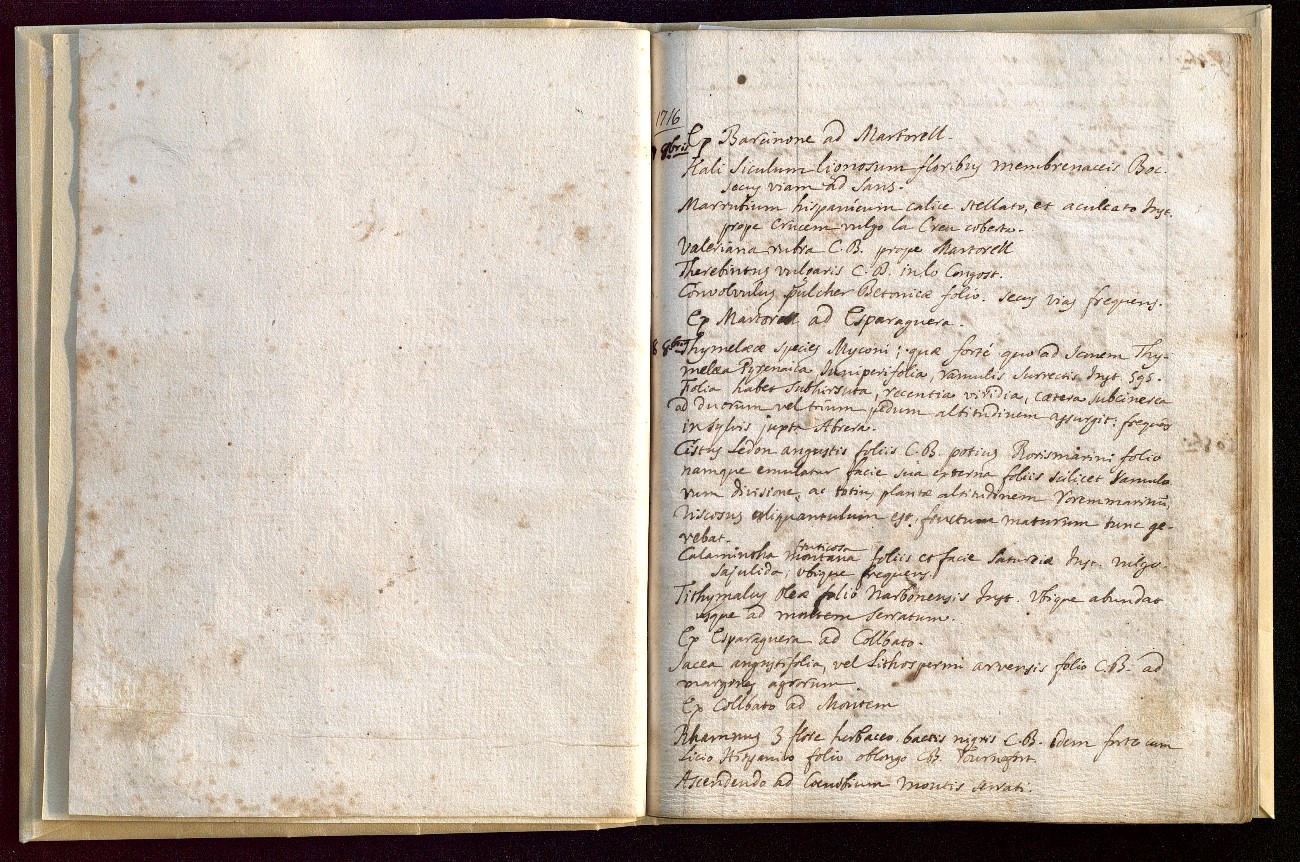 1716
Ex Barcinone ad Martorell.
7 8bris
Kali siculum lignosum floribus membranaceis Boc.
secus viam ad Sans.
Marrubium hispanicum calice stellato, et aculeato Inst.
prope Crucem vulgo la Creu coberta.
Valeriana rubra C.B. prope Martorell
Therebintus vulgaris C.B. in lo Congost.
Convolvulus pulcher Betonicæ folio. secus vias frequens.
Ex Martorell ad Esparaguera.
8 8bris Thymelææ species Myconi; quæ forté quo ad Iconem Thy-
melæa Pyrenaica Juniperifolia, ramulis surrectis Inst. 595.
Folia habet subhirsuta, recentia viridia, cætera subcinerea
ad duorum vel trium pedum altitudinem assurgit. frequens
in sylvis juxta Abrera.
Cistus Ledon angustis foliis C.B. potius Rorismarini folio
namque emulatur facie sua externa foliis scilicet ramulo
rum divisione, ac totius plantæ altitudinem Roremmarinum,
Viscosus aliquantulum est, fructum maturum tunc ge-
rebat.
fruticosa
Calamintha montana foliis et facie Satureiæ Inst. vulgo
sajulida, ubique frequens.
Tithymalus oleæ folio Narbonensis Inst. Ubique abundat
usque ad montem Serratum.
Ex Esparaguera ad Collbato.
Jacea angustifolia, vel Lithospermi arvensis folio C.B. ad
margines agrorum
Ex Collbato ad Montem
Rhamnus 3 flore herbaceo, baccis nigris C.B. idem forte cum
Licio Hispanico folio oblongo CB. Tournefort.
Ascendendo ad Coenobium montis serrati.